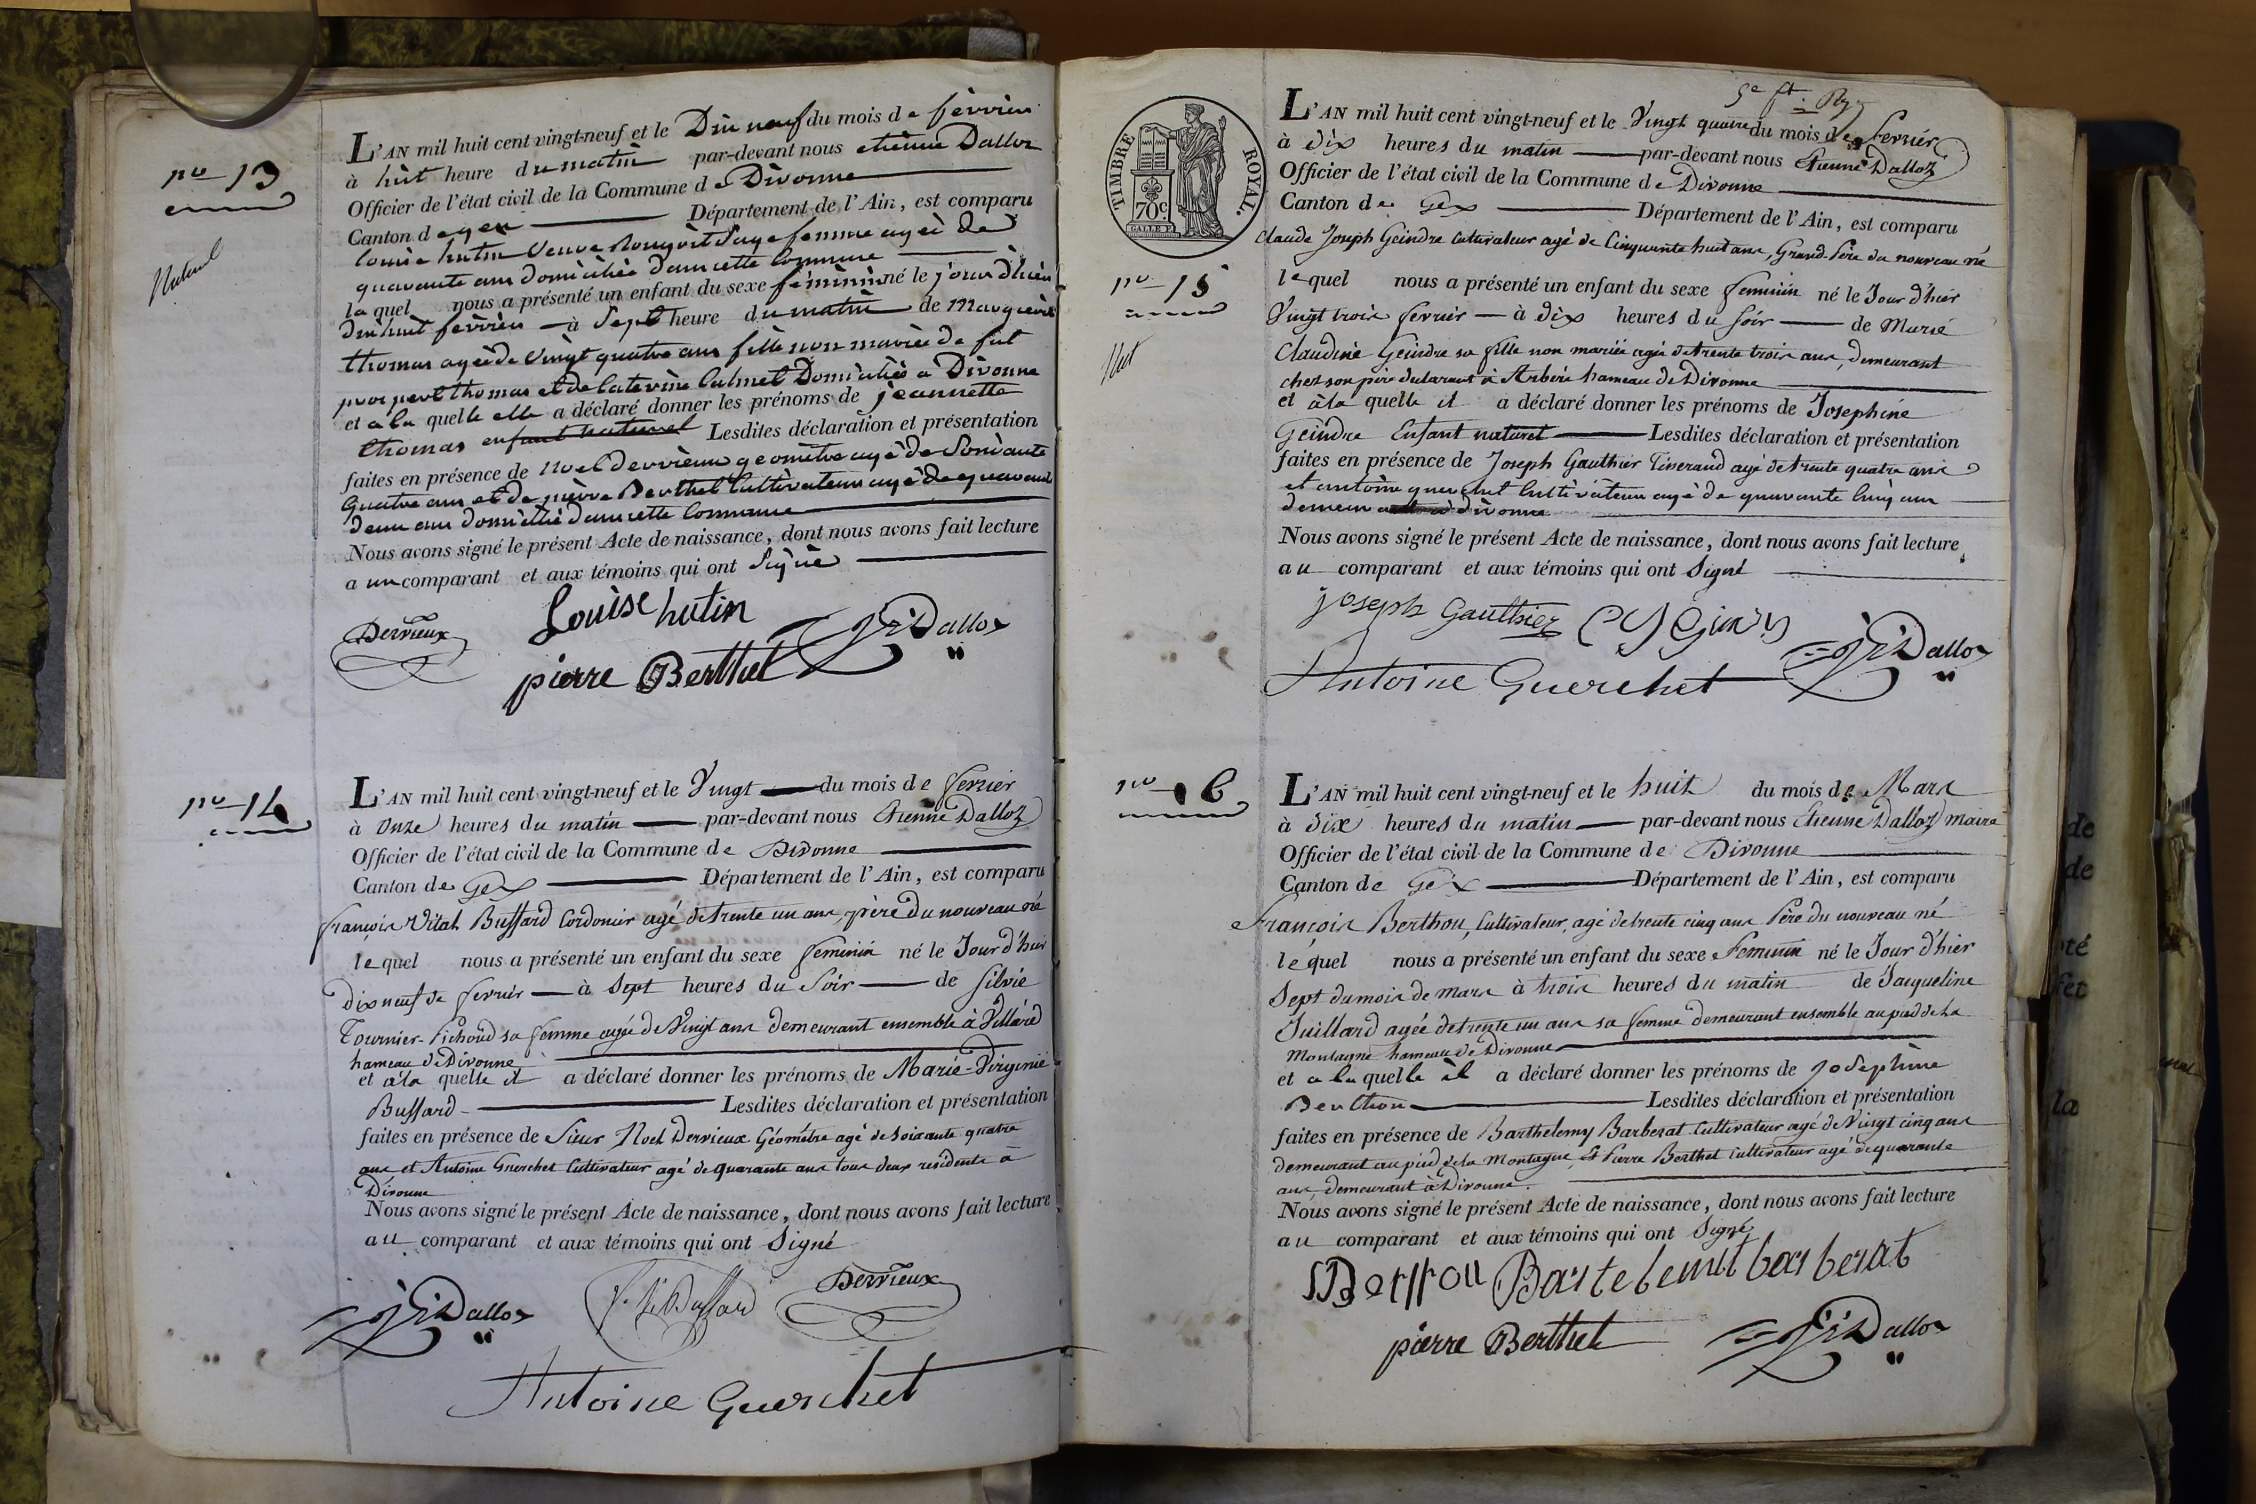 no 13
Naturel
L'AN mil huit cent vingt-neuf et le Dix neuf du mois de février
à huit heure du matin par-devant nous etienne Dalloz
Officier de l'état civil de la Commune de Divonne
Canton de gex Département de l'Ain, est comparu
Louise hutin Veuve Sage femme agée de
quarante ans domiciliée dans cette Commune
la quel nous a présenté un enfant du sexe féminin né le jour d'hier
dix huit février à Sept heure du matin de Marguerite
thomas agée de Vingt quatre ans fille non mariée de fut
thomas et de Caterine Calmel Domiciliés a Divonne
et a la quelle elle a déclaré donner les prénoms de jeannette
thomas enfant naturel Lesdites déclaration et présentation
faites en présence de Noel Dervieux géomètre agé de Soixante
Quatre ans et de pierre Berthet Cultivateur agé de quarante
deux ans domicilié dans cette Commune
Nous avons signé le présent Acte de naissance, dont nous avons fait lecture
a un comparant et aux témoins qui ont Signé
Louise hutin
Dervieux
Dalloz
pierre Berthet
no 14
L'AN mil huit cent vingt-neuf et le Vingt du mois de fevrier
à Onze heures du matin par-devant nous Etienne Dalloz
Officier de l'état civil de la Commune de Divonne
Canton de Gex Département de l'Ain, est comparu
François Vital Buffard Cordonier agé de trente un ans, père du nouveau né
lequel nous a présenté un enfant du sexe feminin né le Jour d'hier
dix neuf de fevrier à Sept heures du Soir de Silvie
Tournier-Pichoud sa femme agée de Vingt ans demeurant ensemble à Villard
hameau de Divonne
et à la quelle il a déclaré donner les prénoms de Marie-Virginie
Buffard Lesdites déclaration et présentation
faites en présence de Sieur Noel Dervieux Géomètre agé de soixante quatre
ans et Antoine Guerchet Cultivateur agé de quarante ans tous deux residents à
Divonne
Nous avons signé le présent Acte de naissance, dont nous avons fait lecture
au comparant et aux témoins qui ont Signé
Dalloz
Buffard
Dervieux
Antoine Guerchet
TIMBRE ROYAL.
70c
no 15
Nat
L'AN mil huit cent vingt-neuf et le Vingt quatre du mois de Fevrier
à dix heures du matin par-devant nous Etienne Dalloz
Officier de l'état civil de la Commune de Divonne
Canton de Gex Département de l'Ain, est comparu
Claude Joseph Geindre Cultivateur agé de Cinquante huit ans, Grand-Père du nouveau né
lequel nous a présenté un enfant du sexe feminin né le Jour d'hier
Vingt trois fevrier à dix heures du Soir de Marie
Claudine Geindre sa fille non mariée agée de trente trois ans, demeurant
chez son père declarant à Arbère hameau de Divonne
et à la quelle il a déclaré donner les prénoms de Josephine
Geindre Enfant naturel Lesdites déclaration et présentation
faites en présence de Joseph Gauthier Tisserand agé de trente quatre ans
et antoine guerchet Cultivateur agé de quarante Cinq ans
demeurant à divonne
Nous avons signé le présent Acte de naissance, dont nous avons fait lecture
au comparant et aux témoins qui ont Signé
joseph Gauthier
Dalloz
Antoine Guerchet
no 16
L'AN mil huit cent vingt-neuf et le huit du mois de Mars
à dix heures du matin par-devant nous Etienne Dalloz maire
Officier de l'état civil de la Commune de Divonne
Canton de Gex Département de l'Ain, est comparu
François Berthou, Cultivateur, agé de trente cinq ans Père du nouveau né
lequel nous a présenté un enfant du sexe Feminin né le Jour d'hier
Sept du mois de mars à trois heures du matin de Jacqueline
Juillard agée de trente un ans sa femme demeurant ensemble au pied de la
Montagne hameau de Divonne
et a la quelle il a déclaré donner les prénoms de Joséphine
Berthou Lesdites déclaration et présentation
faites en présence de Barthelemy Barberat Cultivateur agé de Vingt cinq ans
demeurant au pied de la Montagne, et Pierre Berthet Cultivateur agé de quarante
ans, demeurant à Divonne.
Nous avons signé le présent Acte de naissance, dont nous avons fait lecture
au comparant et aux témoins qui ont Signé
pierre Berthet
Dalloz